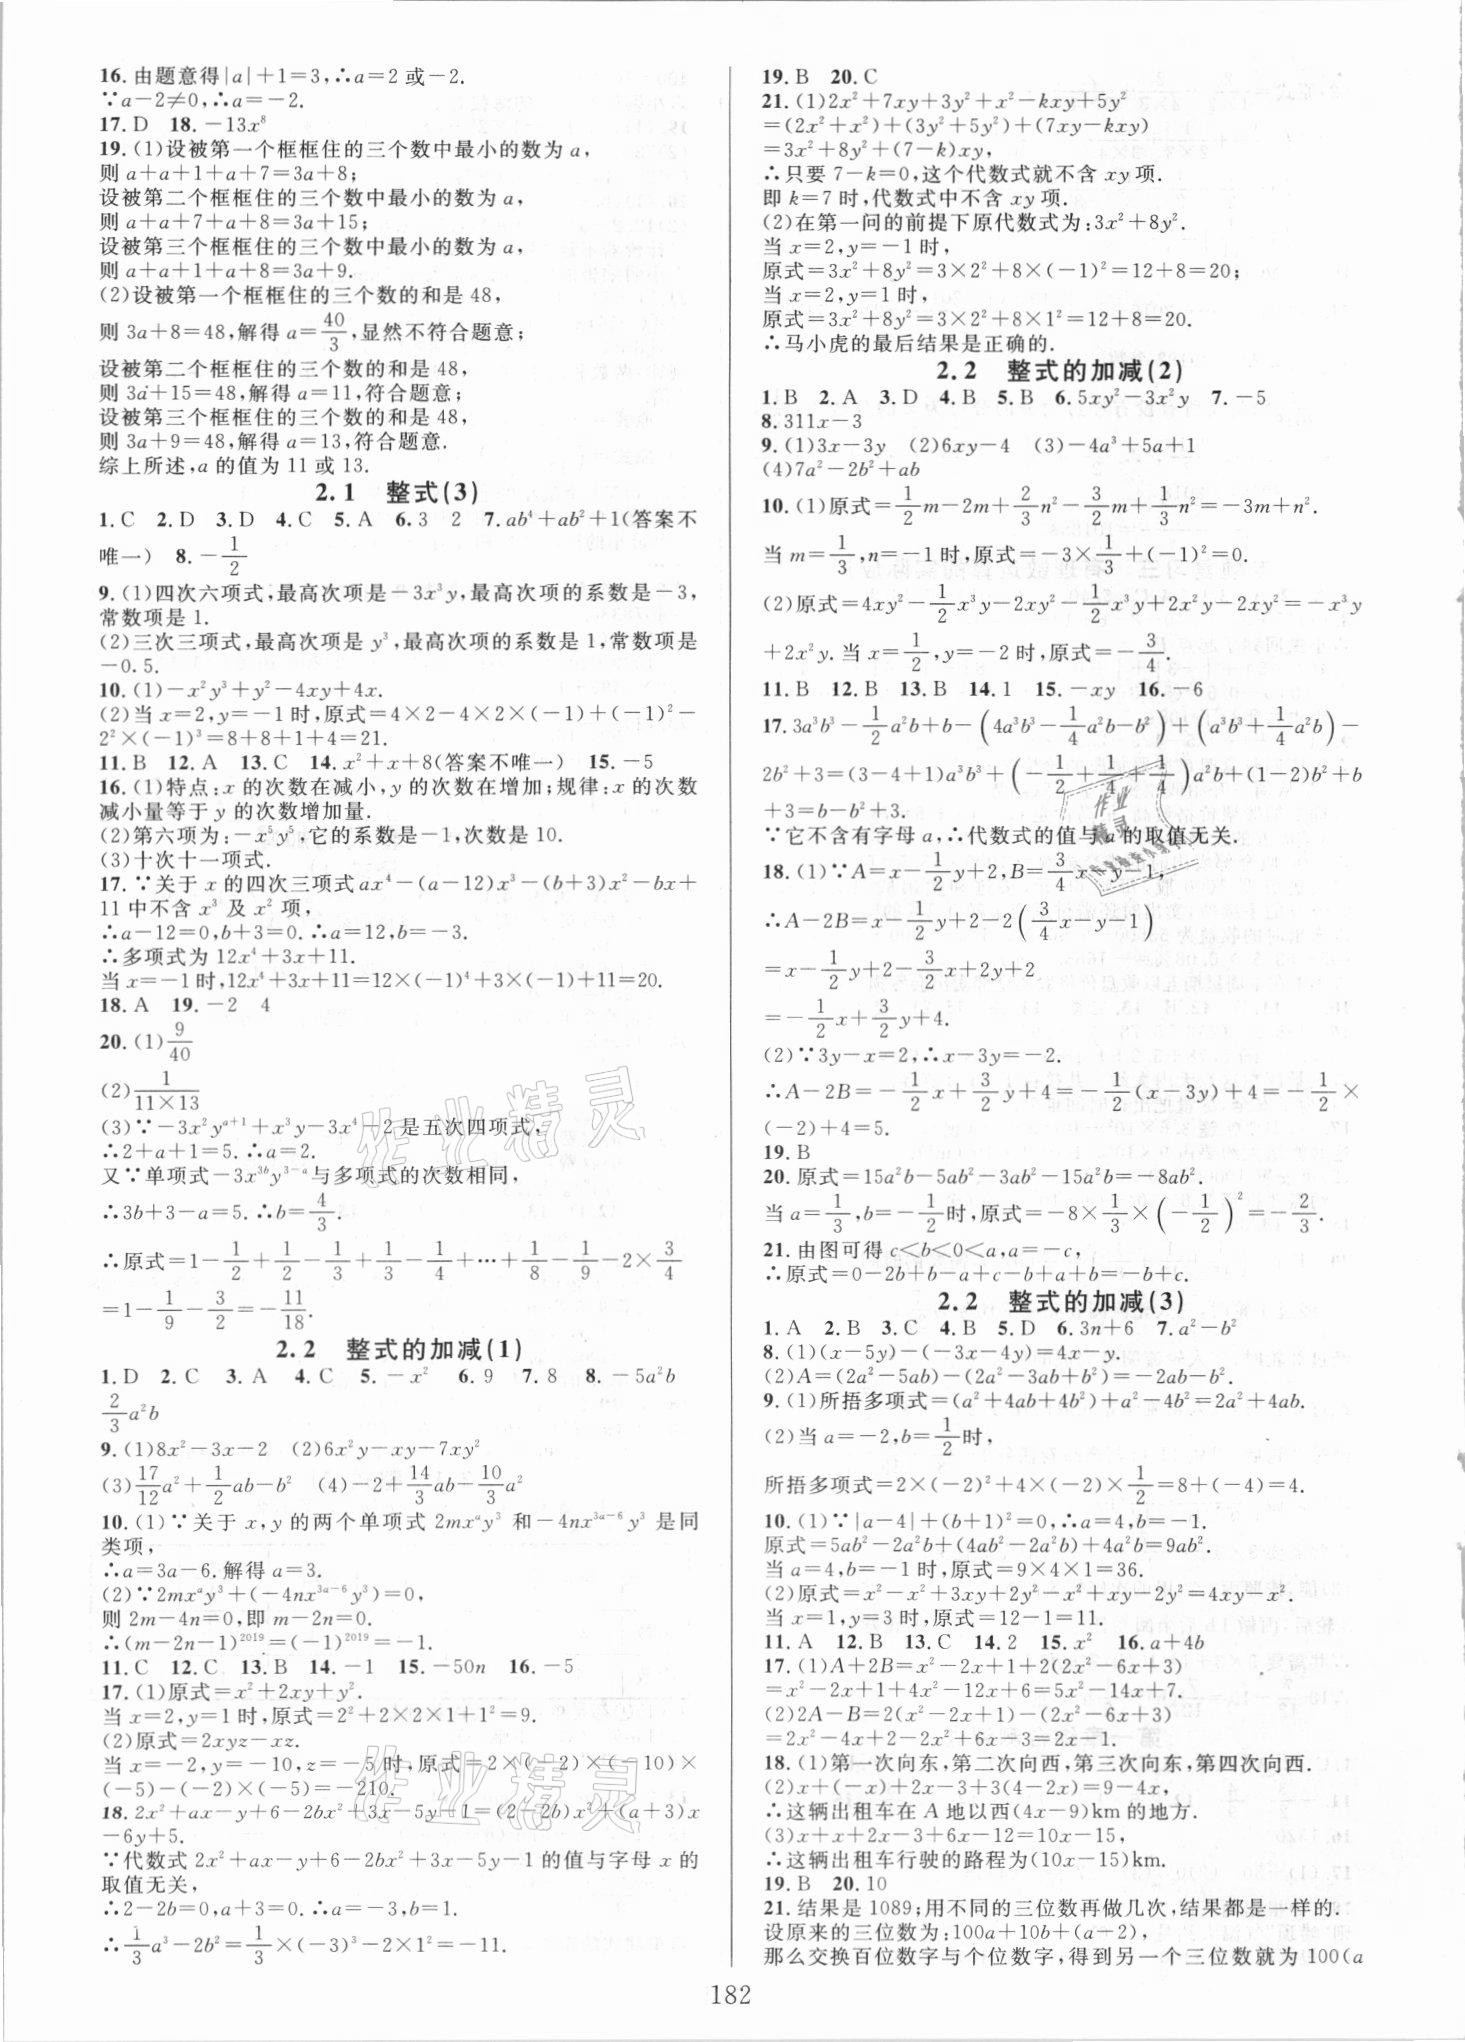 16. 由题意得|a|+1=3,∴a=2 或-2.
∵a-2≠0,∴a=-2.
17. D 18. -13x⁸
19. (1)设被第一个框框住的三个数中最小的数为 a,
则 a+a+1+a+7=3a+8;
设被第二个框框住的三个数中最小的数为 a,
则 a+a+7+a+8=3a+15;
设被第三个框框住的三个数中最小的数为 a,
则 a+a+1+a+8=3a+9.
(2)设被第一个框框住的三个数的和是 48,
则 3a+8=48,解得 a=40/3,显然不符合题意;
设被第二个框框住的三个数的和是 48,
则 3a+15=48,解得 a=11,符合题意;
设被第三个框框住的三个数的和是 48,
则 3a+9=48,解得 a=13,符合题意.
综上所述,a 的值为 11 或 13.
2.1 整式(3)
1. C 2. D 3. D 4. C 5. A 6. 3 2 7. ab⁴+ab²+1(答案不
唯一) 8. -1/2
9. (1)四次六项式,最高次项是-3x³y,最高次项的系数是-3,
常数项是 1.
(2)三次三项式,最高次项是 y³,最高次项的系数是 1,常数项是
-0.5.
10. (1)-x²y³+y²-4xy+4x.
(2)当 x=2,y=-1 时,原式=4×2-4×2×(-1)+(-1)²-
2²×(-1)³=8+8+1+4=21.
11. B 12. A 13. C 14. x²+x+8(答案不唯一) 15. -5
16. (1)特点:x 的次数在减小,y 的次数在增加;规律:x 的次数
减小量等于 y 的次数增加量.
(2)第六项为:-x⁵y⁵,它的系数是-1,次数是 10.
(3)十次十一项式.
17. ∵关于 x 的四次三项式 ax⁴-(a-12)x³-(b+3)x²-bx+
11 中不含 x³ 及 x² 项,
∴a-12=0,b+3=0.∴a=12,b=-3.
∴多项式为 12x⁴+3x+11.
当 x=-1 时,12x⁴+3x+11=12×(-1)⁴+3×(-1)+11=20.
18. A 19. -2 4
20. (1)9/40
(2)1/(11×13)
(3)∵-3x²yᵃ⁺¹+x³y-3x⁴-2 是五次四项式,
∴2+a+1=5.∴a=2.
又∵单项式-3x³ᵇy³⁻ᵃ与多项式的次数相同,
∴3b+3-a=5.∴b=4/3.
∴原式=1-1/2+1/2-1/3+1/3-1/4+…+1/8-1/9-2×3/4
=1-1/9-3/2=-11/18.
2.2 整式的加减(1)
1. D 2. C 3. A 4. C 5. -x² 6. 9 7. 8 8. -5a²b
2/3a²b
9. (1)8x²-3x-2 (2)6x²y-xy-7xy²
(3)17/12a²+1/2ab-b² (4)-2+14/3ab-10/3a²
10. (1)∵关于 x,y 的两个单项式 2mxᵃy³ 和-4nx³ᵃ⁻⁶y³ 是同
类项,
∴a=3a-6.解得 a=3.
(2)∵2mxᵃy³+(-4nx³ᵃ⁻⁶y³)=0,
则 2m-4n=0,即 m-2n=0.
∴(m-2n-1)²⁰¹⁹=(-1)²⁰¹⁹=-1.
11. C 12. C 13. B 14. -1 15. -50n 16. -5
17. (1)原式=x²+2xy+y².
当 x=2,y=1 时,原式=2²+2×2×1+1²=9.
(2)原式=2xyz-xz.
当 x=-2,y=-10,z=-5 时,原式=2×(-2)×(-10)×
(-5)-(-2)×(-5)=-210.
18. 2x²+ax-y+6-2bx²+3x-5y-1=(2-2b)x²+(a+3)x
-6y+5.
∵代数式 2x²+ax-y+6-2bx²+3x-5y-1 的值与字母 x 的
取值无关,
∴2-2b=0,a+3=0.∴a=-3,b=1.
∴1/3a³-2b²=1/3×(-3)³-2×1²=-11.
19. B 20. C
21. (1)2x²+7xy+3y²+x²-kxy+5y²
=(2x²+x²)+(3y²+5y²)+(7xy-kxy)
=3x²+8y²+(7-k)xy,
∴只要 7-k=0,这个代数式就不含 xy 项.
即 k=7 时,代数式中不含 xy 项.
(2)在第一问的前提下原代数式为:3x²+8y².
当 x=2,y=-1 时,
原式=3x²+8y²=3×2²+8×(-1)²=12+8=20;
当 x=2,y=1 时,
原式=3x²+8y²=3×2²+8×1²=12+8=20.
∴马小虎的最后结果是正确的.
2.2 整式的加减(2)
1. B 2. A 3. D 4. B 5. B 6. 5xy²-3x²y 7. -5
8. 311x-3
9. (1)3x-3y (2)6xy-4 (3)-4a³+5a+1
(4)7a²-2b²+ab
10. (1)原式=1/2m-2m+2/3n²-3/2m+1/3n²=-3m+n².
当 m=1/3,n=-1 时,原式=-3×1/3+(-1)²=0.
(2)原式=4xy²-1/2x³y-2xy²-1/2x³y+2x²y-2xy²=-x³y
+2x²y.当 x=1/2,y=-2 时,原式=-3/4.
11. B 12. B 13. B 14. 1 15. -xy 16. -6
17. 3a³b³-1/2a²b+b-(4a³b³-1/4a²b-b²)+(a³b³+1/4a²b)-
2b²+3=(3-4+1)a³b³+(-1/2+1/4+1/4)a²b+(1-2)b²+b
+3=b-b²+3.
∵它不含有字母 a,∴代数式的值与 a 的取值无关.
18. (1)∵A=x-1/2y+2,B=3/4x-y-1,
∴A-2B=x-1/2y+2-2(3/4x-y-1)
=x-1/2y+2-3/2x+2y+2
=-1/2x+3/2y+4.
(2)∵3y-x=2,∴x-3y=-2.
∴A-2B=-1/2x+3/2y+4=-1/2(x-3y)+4=-1/2×
(-2)+4=5.
19. B
20. 原式=15a²b-5ab²-3ab²-15a²b=-8ab².
当 a=1/3,b=-1/2时,原式=-8×1/3×(-1/2)²=-2/3.
21. 由图可得 c<b<0<a,a=-c,
∴原式=0-2b+b-a+c-b+a+b=-b+c.
2.2 整式的加减(3)
1. A 2. B 3. C 4. B 5. D 6. 3n+6 7. a²-b²
8. (1)(x-5y)-(-3x-4y)=4x-y.
(2)A=(2a²-5ab)-(2a²-3ab+b²)=-2ab-b².
9. (1)所捂多项式=(a²+4ab+4b²)+a²-4b²=2a²+4ab.
(2)当 a=-2,b=1/2时,
所捂多项式=2×(-2)²+4×(-2)×1/2=8+(-4)=4.
10. (1)∵|a-4|+(b+1)²=0,∴a=4,b=-1.
原式=5ab²-2a²b+(4ab²-2a²b)+4a²b=9ab².
当 a=4,b=-1 时,原式=9×4×1=36.
(2)原式=x²-x²+3xy+2y²-x²+xy-2y²=4xy-x².
当 x=1,y=3 时,原式=12-1=11.
11. A 12. B 13. C 14. 2 15. x² 16. a+4b
17. (1)A+2B=x²-2x+1+2(2x²-6x+3)
=x²-2x+1+4x²-12x+6=5x²-14x+7.
(2)2A-B=2(x²-2x+1)-(2x²-6x+3)
=2x²-4x+2-2x²+6x-3=2x-1.
18. (1)第一次向东,第二次向西,第三次向东,第四次向西.
(2)x+(-x)+2x-3+3(4-2x)=9-4x,
∴这辆出租车在 A 地以西(4x-9)km的地方.
(3)x+x+2x-3+6x-12=10x-15,
∴这辆出租车行驶的路程为(10x-15)km.
19. B 20. 10
21. 结果是 1089;用不同的三位数再做几次,结果都是一样的.
设原来的三位数为:100a+10b+(a-2),
那么交换百位数字与个位数字,得到另一个三位数就为 100(a
182
作业精灵
作业精灵
作业
精灵